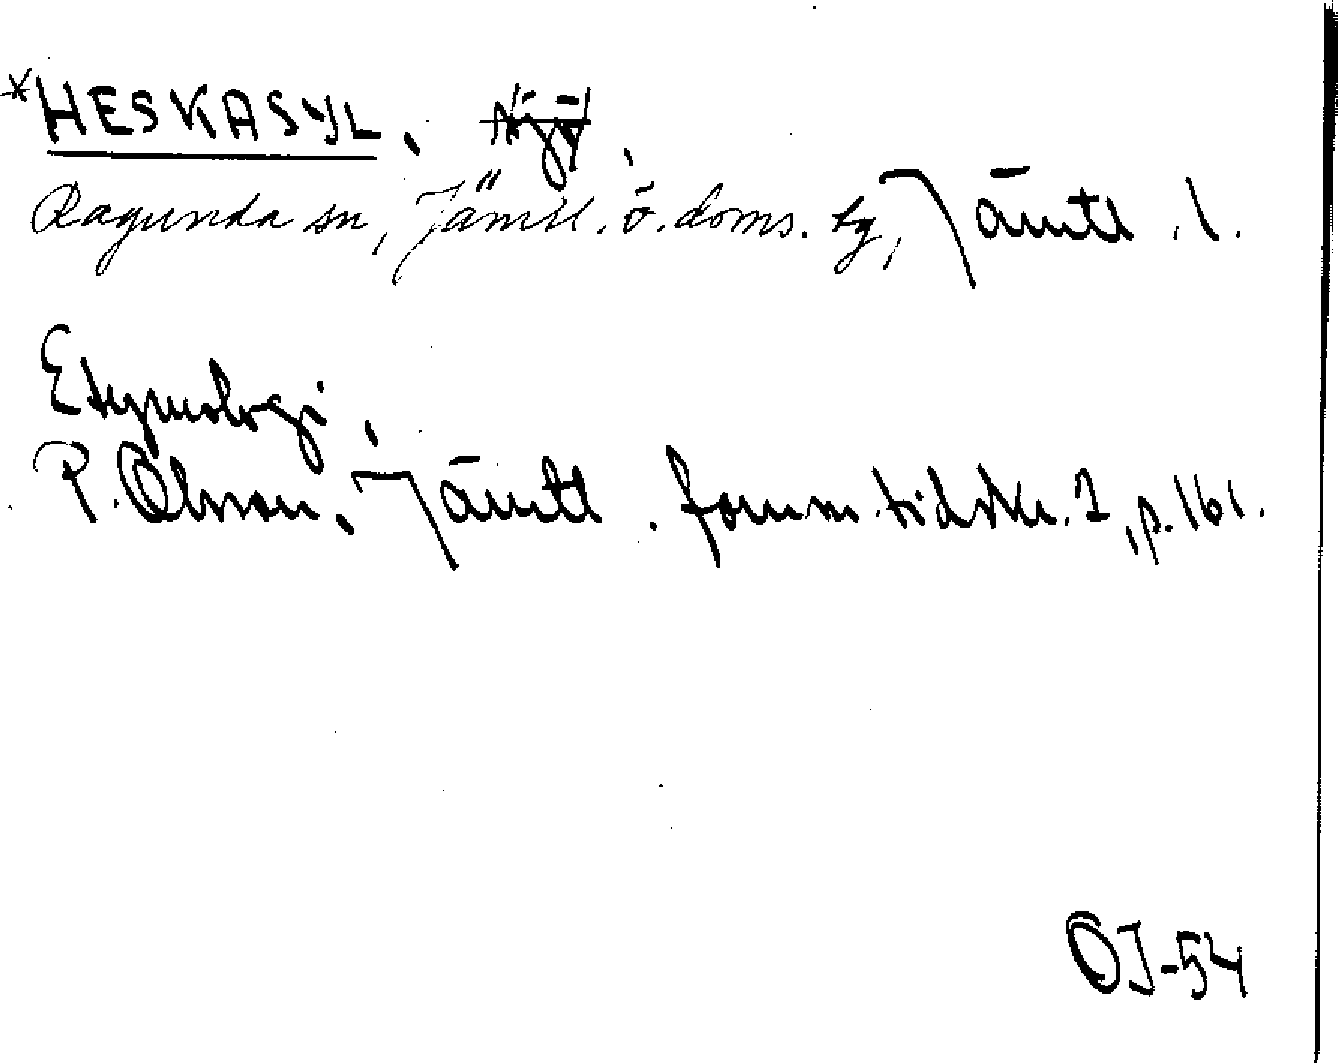 *HESKASYL,
Ragunda sn, Jämtl. ö. doms. tg, Jämtl. l.
Etymologi,
P. Olsson, Jämtl. fornm. tidskr. 2, p. 161.
OJ-54